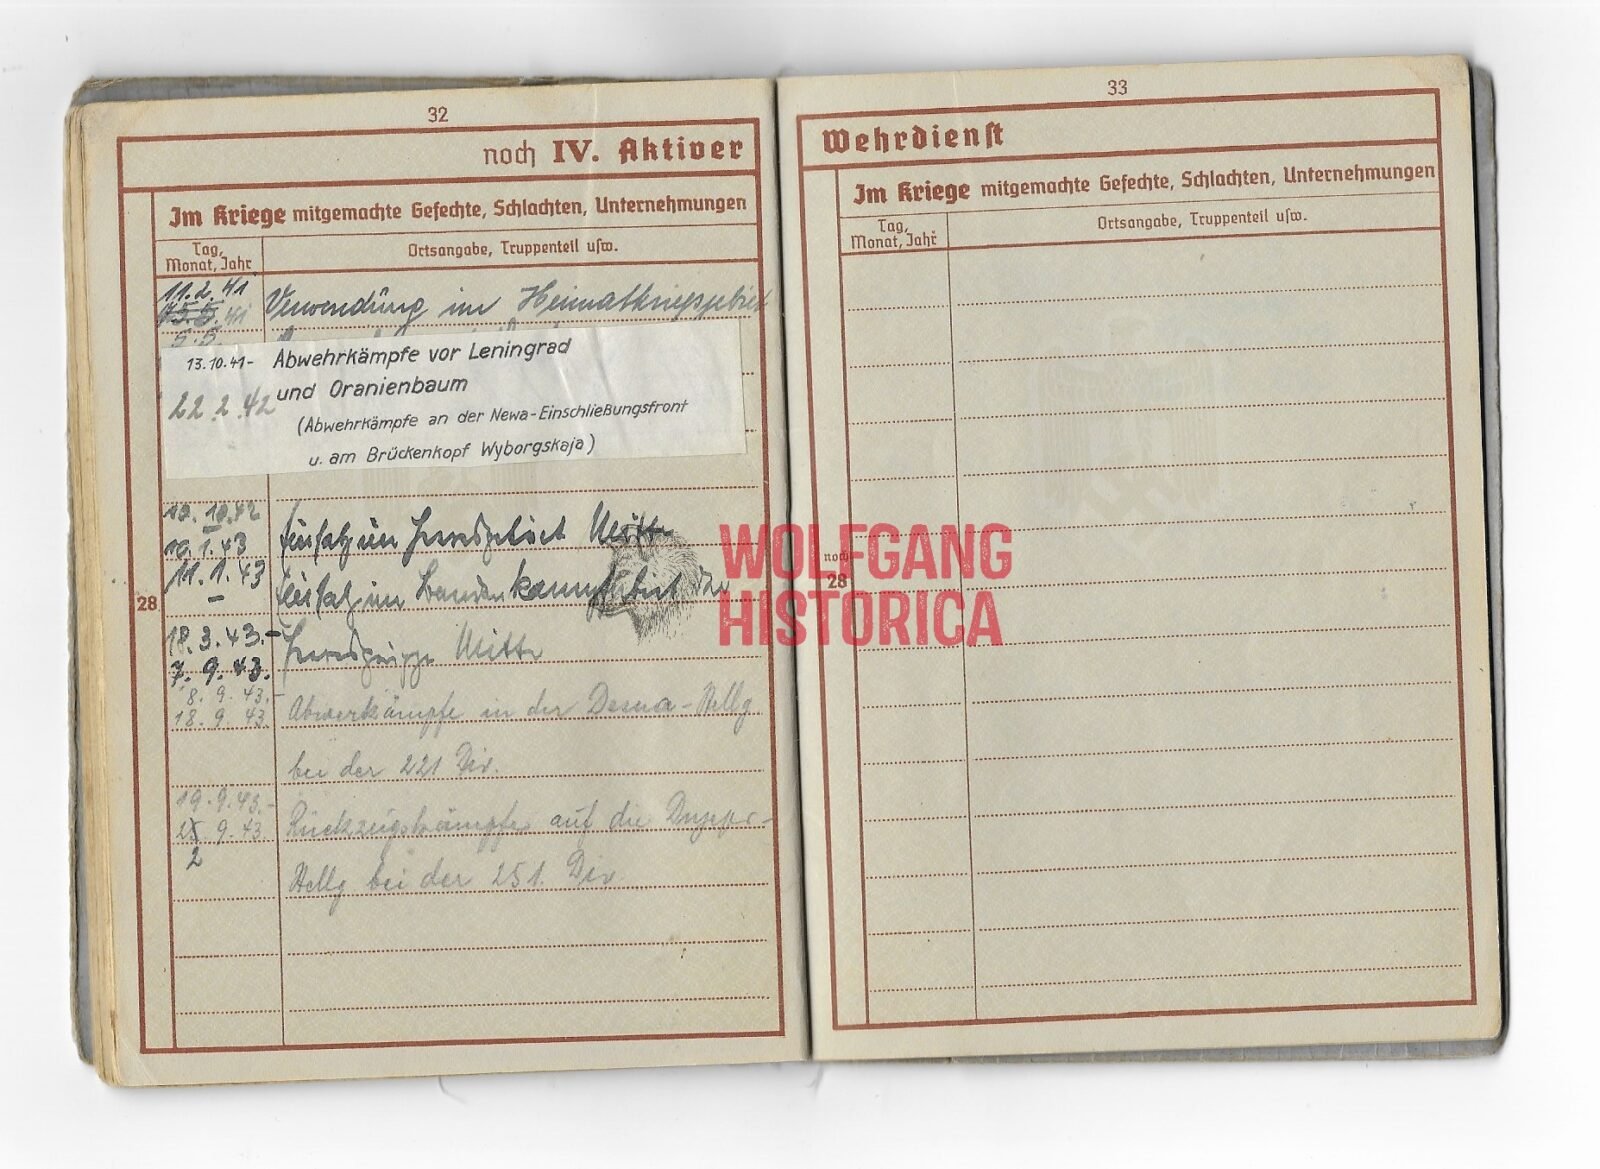 32
noch IV. Aktiver
Im Kriege mitgemachte Gefechte, Schlachten, Unternehmungen
Tag,
Monat, Jahr
Ortsangabe, Truppenteil usw.
11.2.41
41 Verwendung im Heimatkriegsgebiet
5.5.
13.10.41- Abwehrkämpfe vor Leningrad
22.2.42 und Oranienbaum
(Abwehrkämpfe an der Newa-Einschließungsfront
u. am Brückenkopf Wyborgskaja)
10.42 Einsatz im Heeresgebiet Mitte
10.1.43
11.1.43 Einsatz im Bandenkampfgebiet der
28
18.3.43.- Heeresgruppe Mitte
7.9.43.
8.9.43.-
18.9.43. Abwerkämpfe in der Desna-Stellg
bei der 221 Div.
19.9.43.-
9.43. Rückzugskämpfe auf die Dnjepr-
2
Stellg bei der 251. Div.
33
Wehrdienst
Im Kriege mitgemachte Gefechte, Schlachten, Unternehmungen
Tag,
Monat, Jahr
Ortsangabe, Truppenteil usw.
noch
28
WOLFGANG
HISTORICA